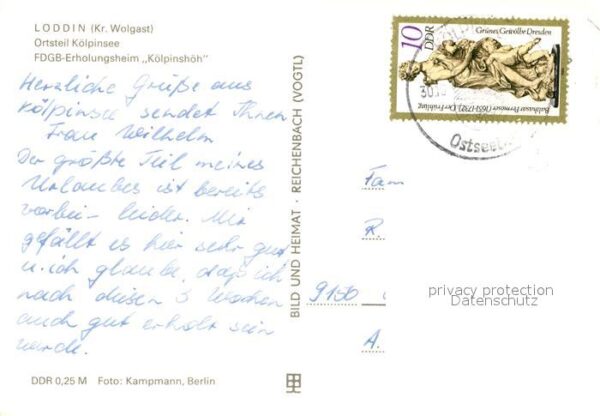 LODDIN (Kr. Wolgast)
Ortsteil Kölpinsee
FDGB-Erholungsheim „Kölpinshöh"
Herzliche Grüße aus
Kölpinsee sendet Ihnen
Frau Wilhelm
Der größte Teil meines
Urlaubes ist bereits
vorbei - leider. Mir
gefällt es hier sehr gut
u. ich glaube, daß ich
nach diesen 3 Wochen
auch gut erholt sein
werde.
DDR 0,25 M Foto: Kampmann, Berlin
BILD UND HEIMAT · REICHENBACH (VOGTL)
Grünes Gewölbe Dresden
10
DDR
Balthasar Permoser (1651-1732), Der Frühling
Ostsee
Fam
R.
9150
A.
privacy protection
Datenschutz